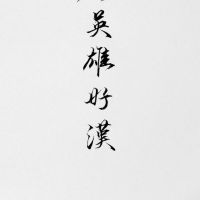 英雄好漢